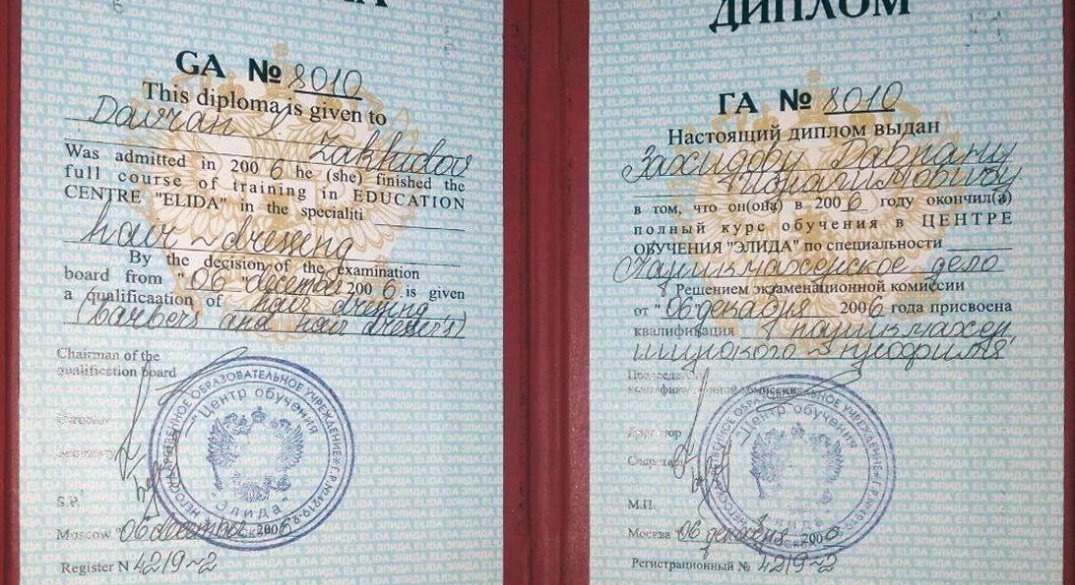 GA № 8010
This diploma is given to
Davran I. Zakhidov
Was admitted in 2006 he (she) finished the
full course of training in EDUCATION
CENTRE "ELIDA" in the speciality
hair ~ dressing
By the decision of the examination
board from "06" december 2006 is given
a qualificaation of hair dressing
(barbers and hair dresser's)
Chairman of the
qualification board
S.P.
Moscow "06 december 2006
Register N 4219~2
НЕГОСУДАРСТВЕННОЕ ОБРАЗОВАТЕЛЬНОЕ УЧРЕЖДЕНИЕ
"Центр обучения
"Элида"
ДИПЛОМ
ГА № 8010
Настоящий диплом выдан
Захидову Даврану
Ибрагимовичу
в том, что он(она) в 2006 году окончил(а)
полный курс обучения в ЦЕНТРЕ
ОБУЧЕНИЯ "ЭЛИДА" по специальности
Парикмахерское дело
Решением экзаменационной комиссии
от "06" декабря 2006 года присвоена
квалификация парикмахер
широкого ~ профиля
Председатель
Директор
Секретарь
М.П.
Москва 06 декабря 2006
Регистрационный № 4219~2
Центр обучения